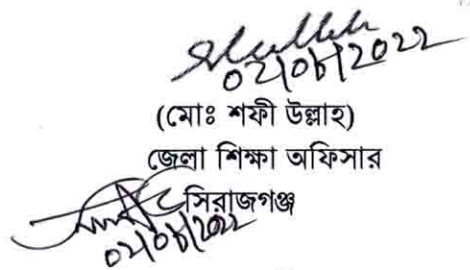 02/06/2022
(মোঃ শফী উল্লাহ)
জেলা শিক্ষা অফিসার
সিরাজগঞ্জ
02/06/2022